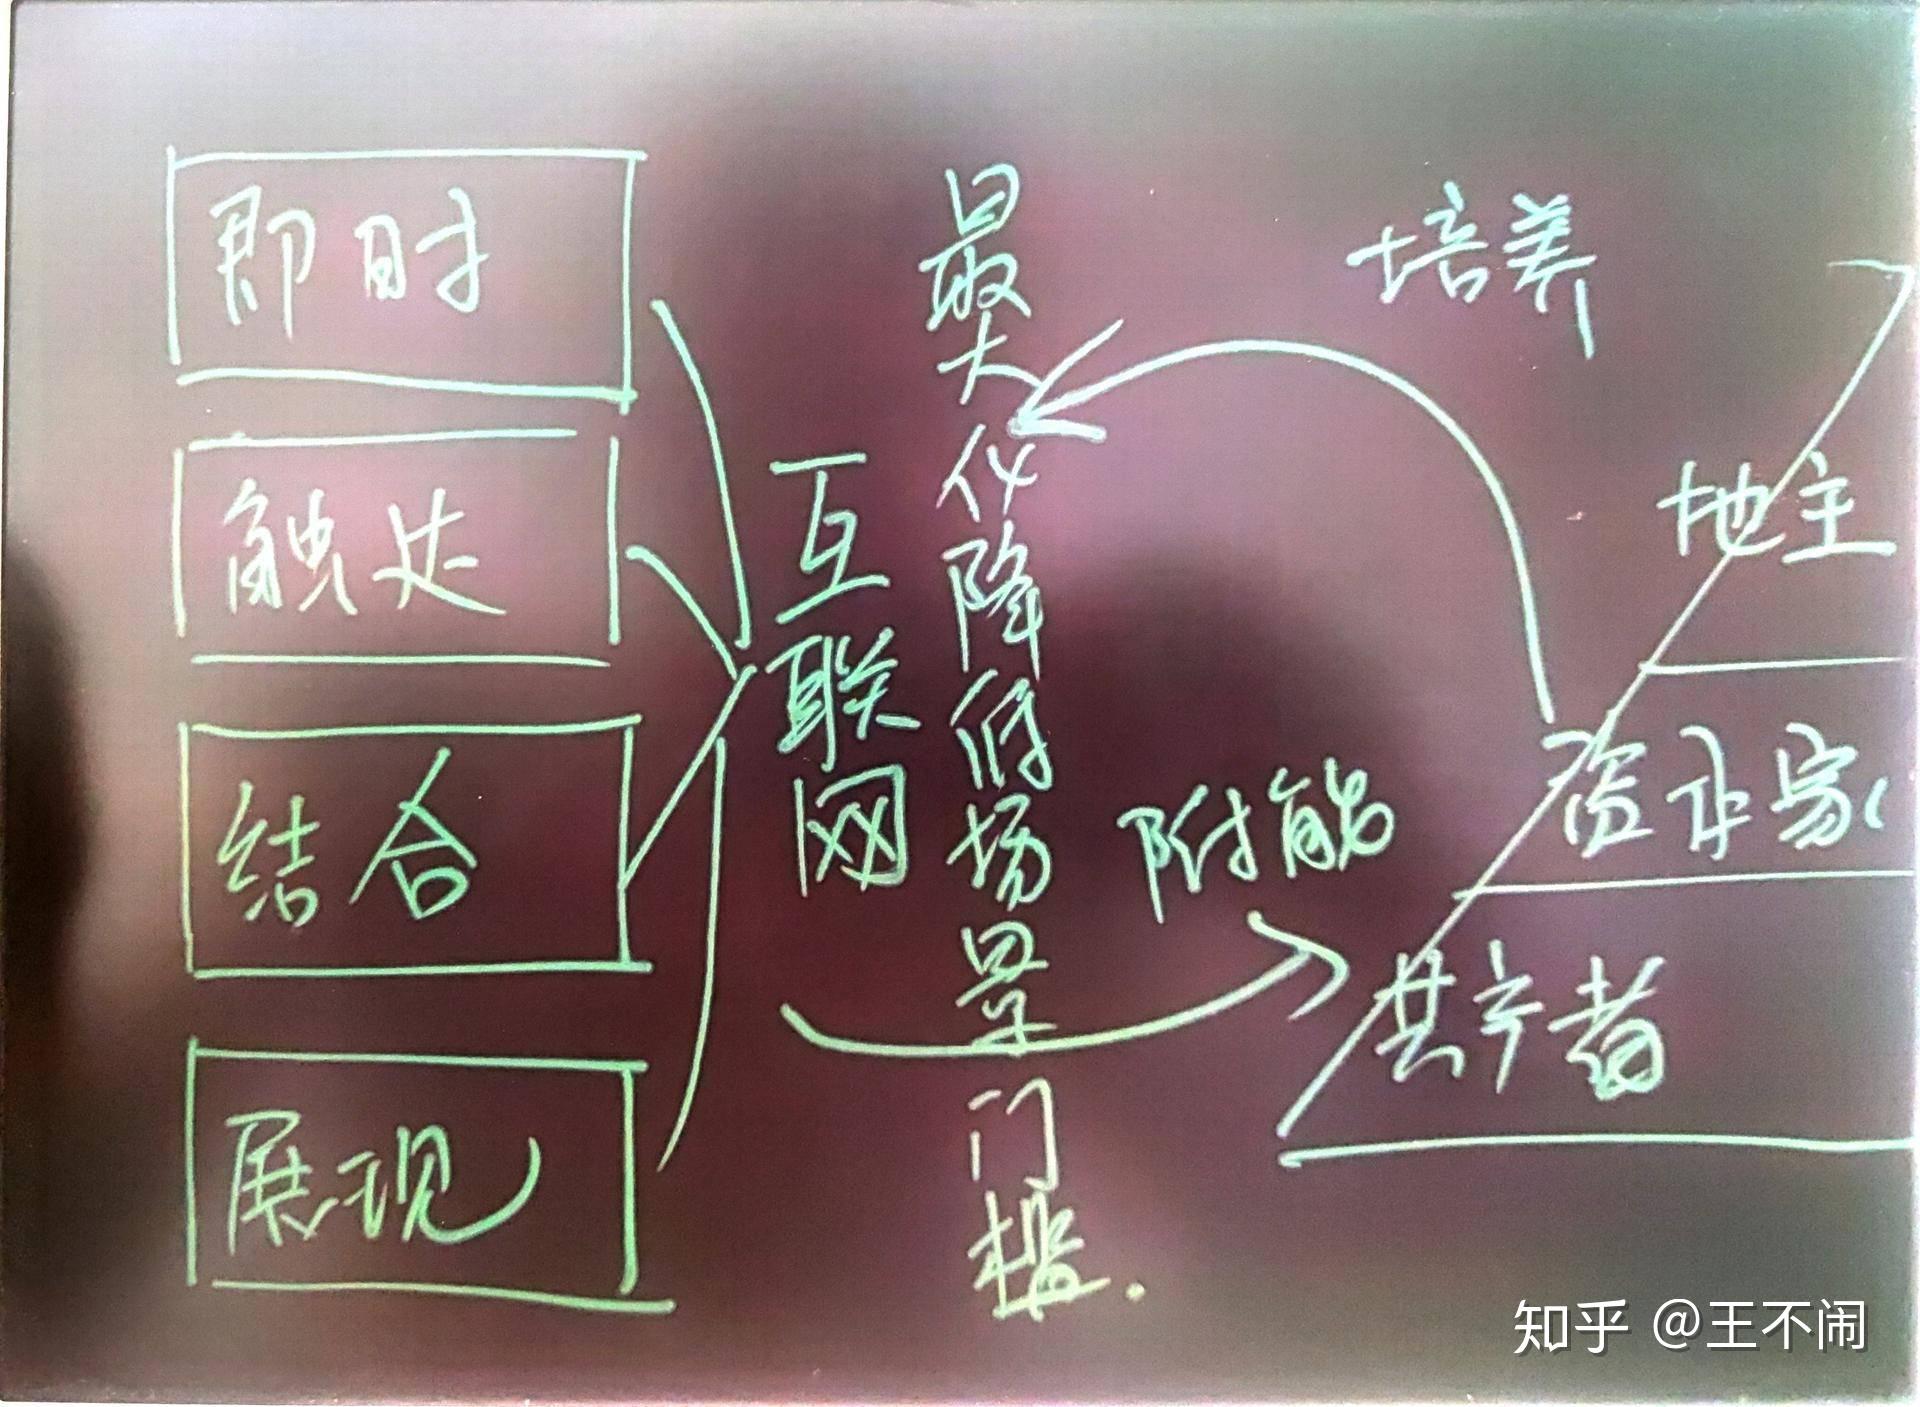 即时
触处
结合
展现
互联网
最大化降低场景门槛.
培养
附能
地主
资本家
共产者
知乎 @王不闹